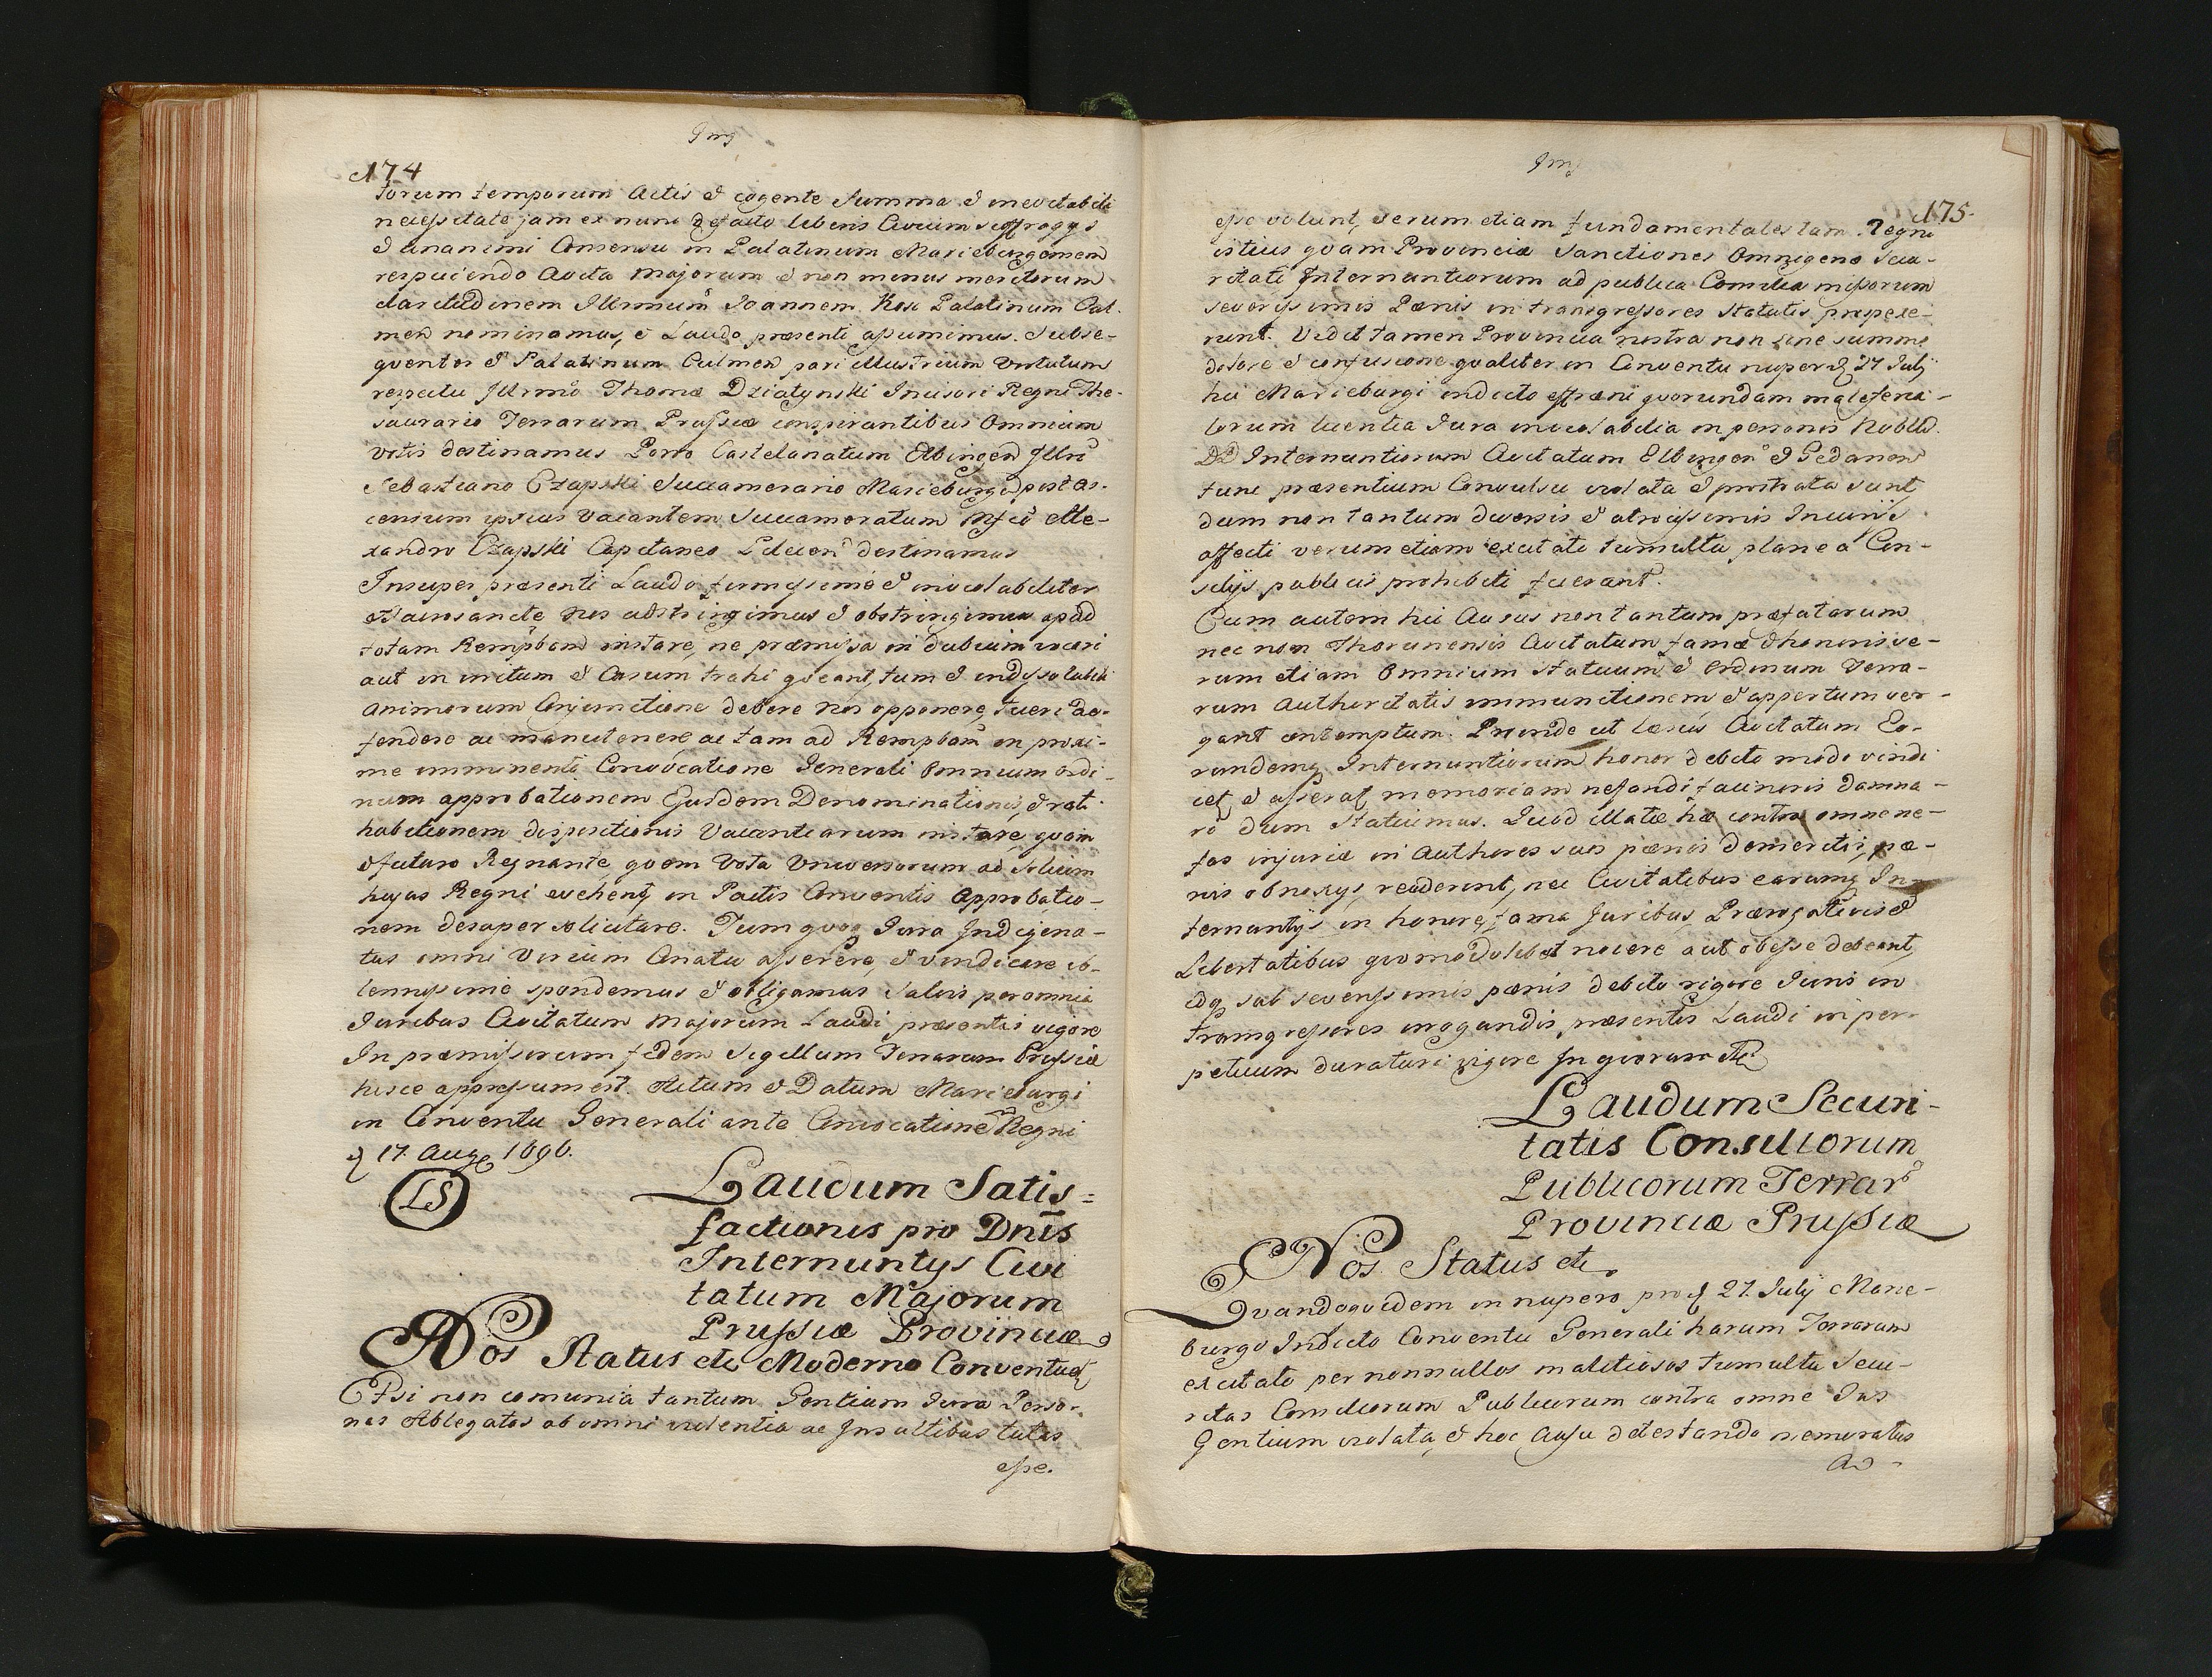 Img
174
torum temporum Actis & cogente Summa & inevitabili
necessitate jam ex nunc de facto liberis Civium suffragys
& unanimi Consensu in Palatinum Marieburgensem
respiciendo Avita majorum & non minus meritorum
claritudinem Illrmum Joannem Kos Palatinum Cul-
men nominamus, & Laudo præsenti assumimus. Subse-
quenter & Palatinum Culmen pari illustrium Virtutum
respectu Illrmo Thomæ Dzialynski Incisori Regni The-
saurario Terrarum Prussiæ conspirantibus Omnium
votis destinamus Porro Castelanatum Elbingen Illri
Sebastiano Czapski Succamerario Marieburgen post as-
censum ipsius Vacantem Succamoratum Mfco Ale-
xandro Czapski Capitaneo destinamus
Insuper præsenti Laudo firmissimè & inviolabiliter
& sacrosancte nos adstringimus & obstringimus apud
totam Rempbcam instare, ne præmissa in dubium vocari
aut in irritum & Cassum trahi queant, tum & indissolubili
Animorum Conjunctione debere nos opponere, tueri de-
fendere ac manutenere ac tam ad Rempbcam in proxi-
me imminenti Convocatione Generali Omnium Ordi-
num approbationem Ejusdem Denominationis, & rati-
habitionem dispositionis Vacantiarum instare, quam
& futuro Regnante, quem Vota Universorum ad Solium
hujus Regni evehent, in Pactis Conventis Approbatio-
nem desuper solicitare. Tum quoq Jura Indigena-
tus omni Virium Conatu asserere, & vindicare so-
lennissime spondemus & obligamus Salvis per omnia
Juribus Civitatum Majorum Laudi præsentis vigore
In præmissorum fidem Sigellum Terrarum Prussiæ
hisce appressum est. Actum & Datum Marieburgi
in Conventu Generali ante Convocationem Regni
d 17. Aug 1696.
LS
Laudum Satis=
factionis pro Dnis
Internuntys Civi
tatum Majorum
Prussiæ Provinciæ
Nos Status etc Moderno Conventui
Etsi non comunia tantum Gentium Jura Perso-
nas Ablegatas ab omni violentia ac Insultibus tutas
esse.
Img
175.
esse volunt, verum etiam fundamentales tam Regni
istius quam Provinciæ Sanctiones Omnigenæ Secu-
ritati Internuntiorum ad publica Comitia missorum
severissimis Pænis in transgressores Statutis prospexe-
runt. Vidit tamen Provincia nostra non sine summo
dolore & confusione qualiter in Conventu nuper d 27 July
hic Marieburgi indicto effræni quorundam maleferia-
torum licentia Jura inviolabilia in personis Nobild.
DD Internuntiorum Civitatum Elbingen & Gedanen
tunc præsentium Convulsa violata & prostrata sunt
dum non tantum diversis & atrocissimis Injuriis
affecti verum etiam excitato tumultu plane a Con-
silys publicis prohibiti fuerant.
Cum autem hic Ausus non tantum præfatarum
nec non Thorunensis Civitatum famæ & honoris ve-
rum etiam Omnium Statuum & Ordinum Terra-
rum Authoritatis imminutionem & appertum ver-
gant contemptum. Proinde ut læsus Civitatum Eo-
rundemq Internuntiorum honor debito modo vindi
cet & asserat memoriam nefandi facinoris damna-
ro dum Statuimus. Quod illatæ hæ contra omne ne-
fas injuriæ in Authores suos pænis demeritis, pæ-
nis obnoxys, recederint, nec Civitatibus earumq In-
ternuntys in honore, fama Juribus, Prærogativis &
Libertatibus quomodolibet nocere aut obesse debeant,
idq sub severissimis pænis debito rigore Juris in
transgressores irrogandis, præsentis Laudi in per-
petuum duraturi vigore In quorum etc
Laudum Securi-
tatis Consiliorum
Publicorum Terrar
Provinciæ Prussiæ
Nos Status etc.
Quandoquidem in nupero pro d 27. July Marie-
burgo Indicto Conventu Generali harum Terrarum
excitato per nonnullos malitiosos tumultu Secu-
ritas Comitiorum Publicorum contra omne Jus
Gentium violata, & hoc Ausu detestando
ad-